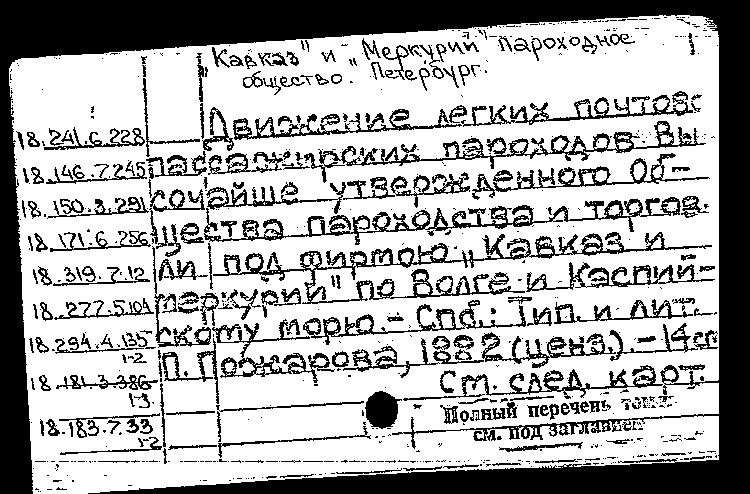 "Кавказ" и "Меркурий" пароходное 1
общество. Петербург.
18.241.6.228 Движение легких почтовс
18.146.7.245 пассажирских пароходов Вы
18.150.3.291 сочайше утвержденного Об-
18.171.6.256 щества пароходства и торгов.
18.319.7.12 ли под фирмою "Кавказ и
18.277.5.104 меркурий" по Волге и Каспий-
18.294.4.135 скому морю. - Спб.: Тип. и лит.
1-2 П. Пожарова, 1882 (ценз.). - 14 сп
18.181.3.386 См. след. карт.
1-3
18.183.7.33 Полный перечень томов
1-2 см. под заглавием